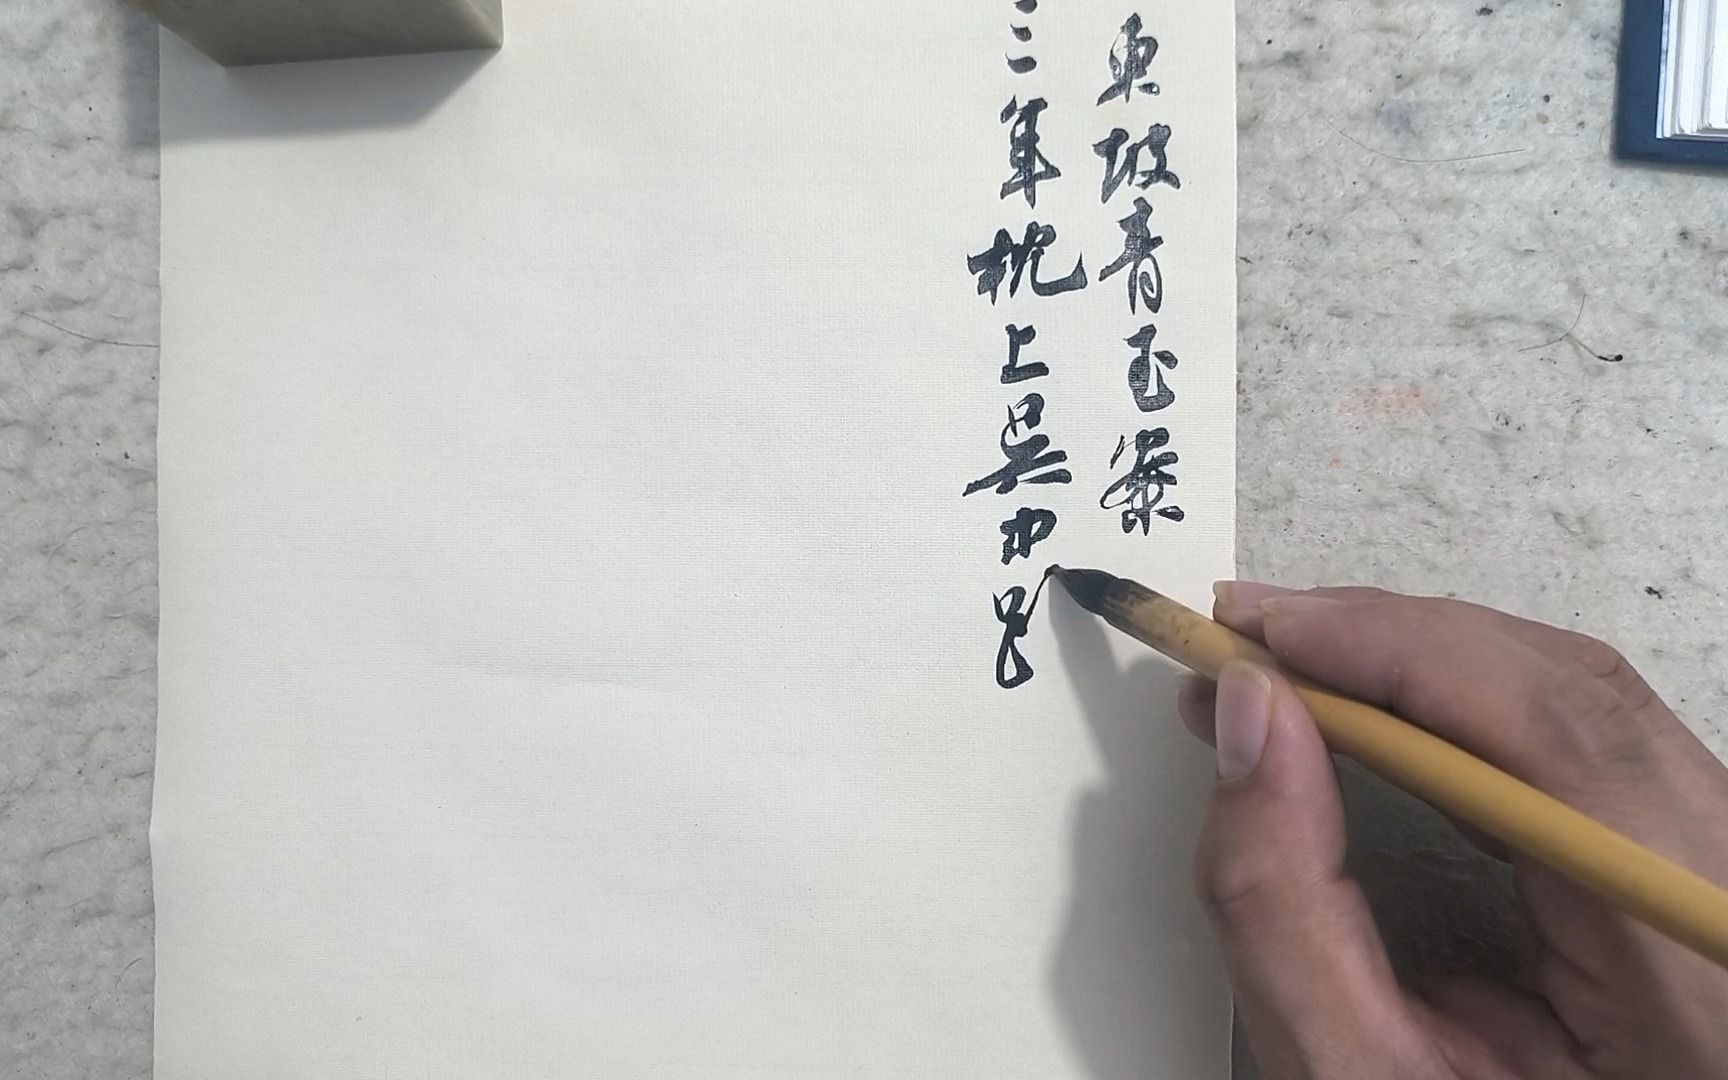 東坡青玉案
三年枕上吳中